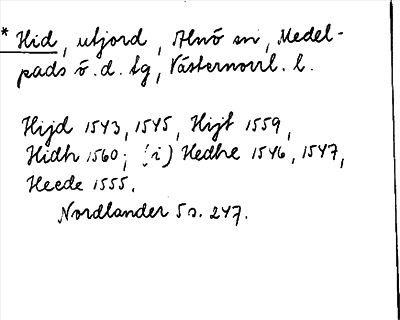 * Hid, utjord, Alnö sn, Medel-
pads ö. d. tg, Västernorrl. l.
Hijd 1543, 1545, Hijt 1559,
Hidh 1560; (i) Hedhe 1546, 1547,
Heede 1555.
Nordlander 5 s. 247.